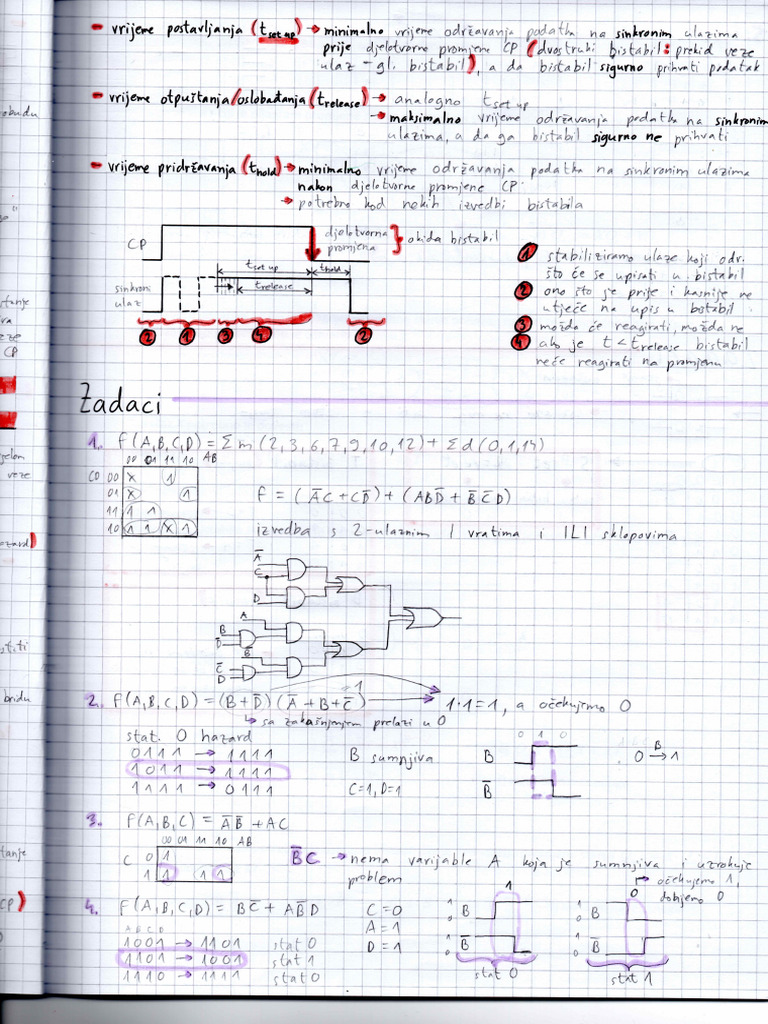 - vrijeme postavljanja (t set up) → minimalno vrijeme održavanja podatka na sinkronim ulazima
prije djelotvorne promjene CP (dvostruki bistabil: prekid veze
ulaz - gl. bistabil), a da bistabil sigurno prihvati podatak
- vrijeme otpuštanja/oslobađanja (t release) → analogno t set up
→ maksimalno vrijeme održavanja podatka na sinkronim
ulazima, a da ga bistabil sigurno ne prihvati
- vrijeme pridržavanja (t hold) → minimalno vrijeme održavanja podatka na sinkronim ulazima
nakon djelotvorne promjene CP
→ potrebno kod nekih izvedbi bistabila
CP
djelotvorna
promjena } okida bistabil
t set up t hold
sinkroni
ulaz
t release
2 1 3 4 2
1 stabiliziramo ulaze koji odr.
što će se upisati u bistabil
2 ono što je prije i kasnije ne
utječe na upis u bistabil
3 možda će reagirati, možda ne
4 ako je t < t release bistabil
neće reagirati na promjenu
Zadaci
1. f(A,B,C,D) = Σm(2,3,6,7,9,10,12) + Σd(0,1,14)
00 01 11 10 AB
CD 00 X 1
01 X 1
11 1 1
10 1 1 X 1
f = (A̅C + CD̅) + (ABD̅ + B̅C̅D)
izvedba s 2-ulaznim I vratima i ILI sklopovima
A̅
C
D
A
B
D̅
B̅
C̅
D
2. f(A,B,C,D) = (B+D̅)(A̅+B̅+C̅) → 1·1=1, a očekujemo 0
=1
↳ sa zakašnjenjem prelazi u 0
stat. 0 hazard
0111 → 1111
1011 → 1111
1111 → 0111
B sumnjiva
C=1, D=1
0 1 0
B
B̅
0 →B 1
3. f(A,B,C) = A̅B̅ + AC
00 01 11 10 AB
C 0 1
1 1 1 1
B̅C → nema varijable A koja je sumnjiva i uzrokuje
problem
4. f(A,B,C,D) = BC̅ + AB̅D
C=0
A=1
D=1
A B C D
1001 → 1101 stat 0
1101 → 1001 stat 1
1110 → 1111 stat 0
1
1 B
0
1 B̅
0
stat 0
→ očekujemo 1,
dobijemo 0
0
1 B
0
1 B̅
0
stat 1